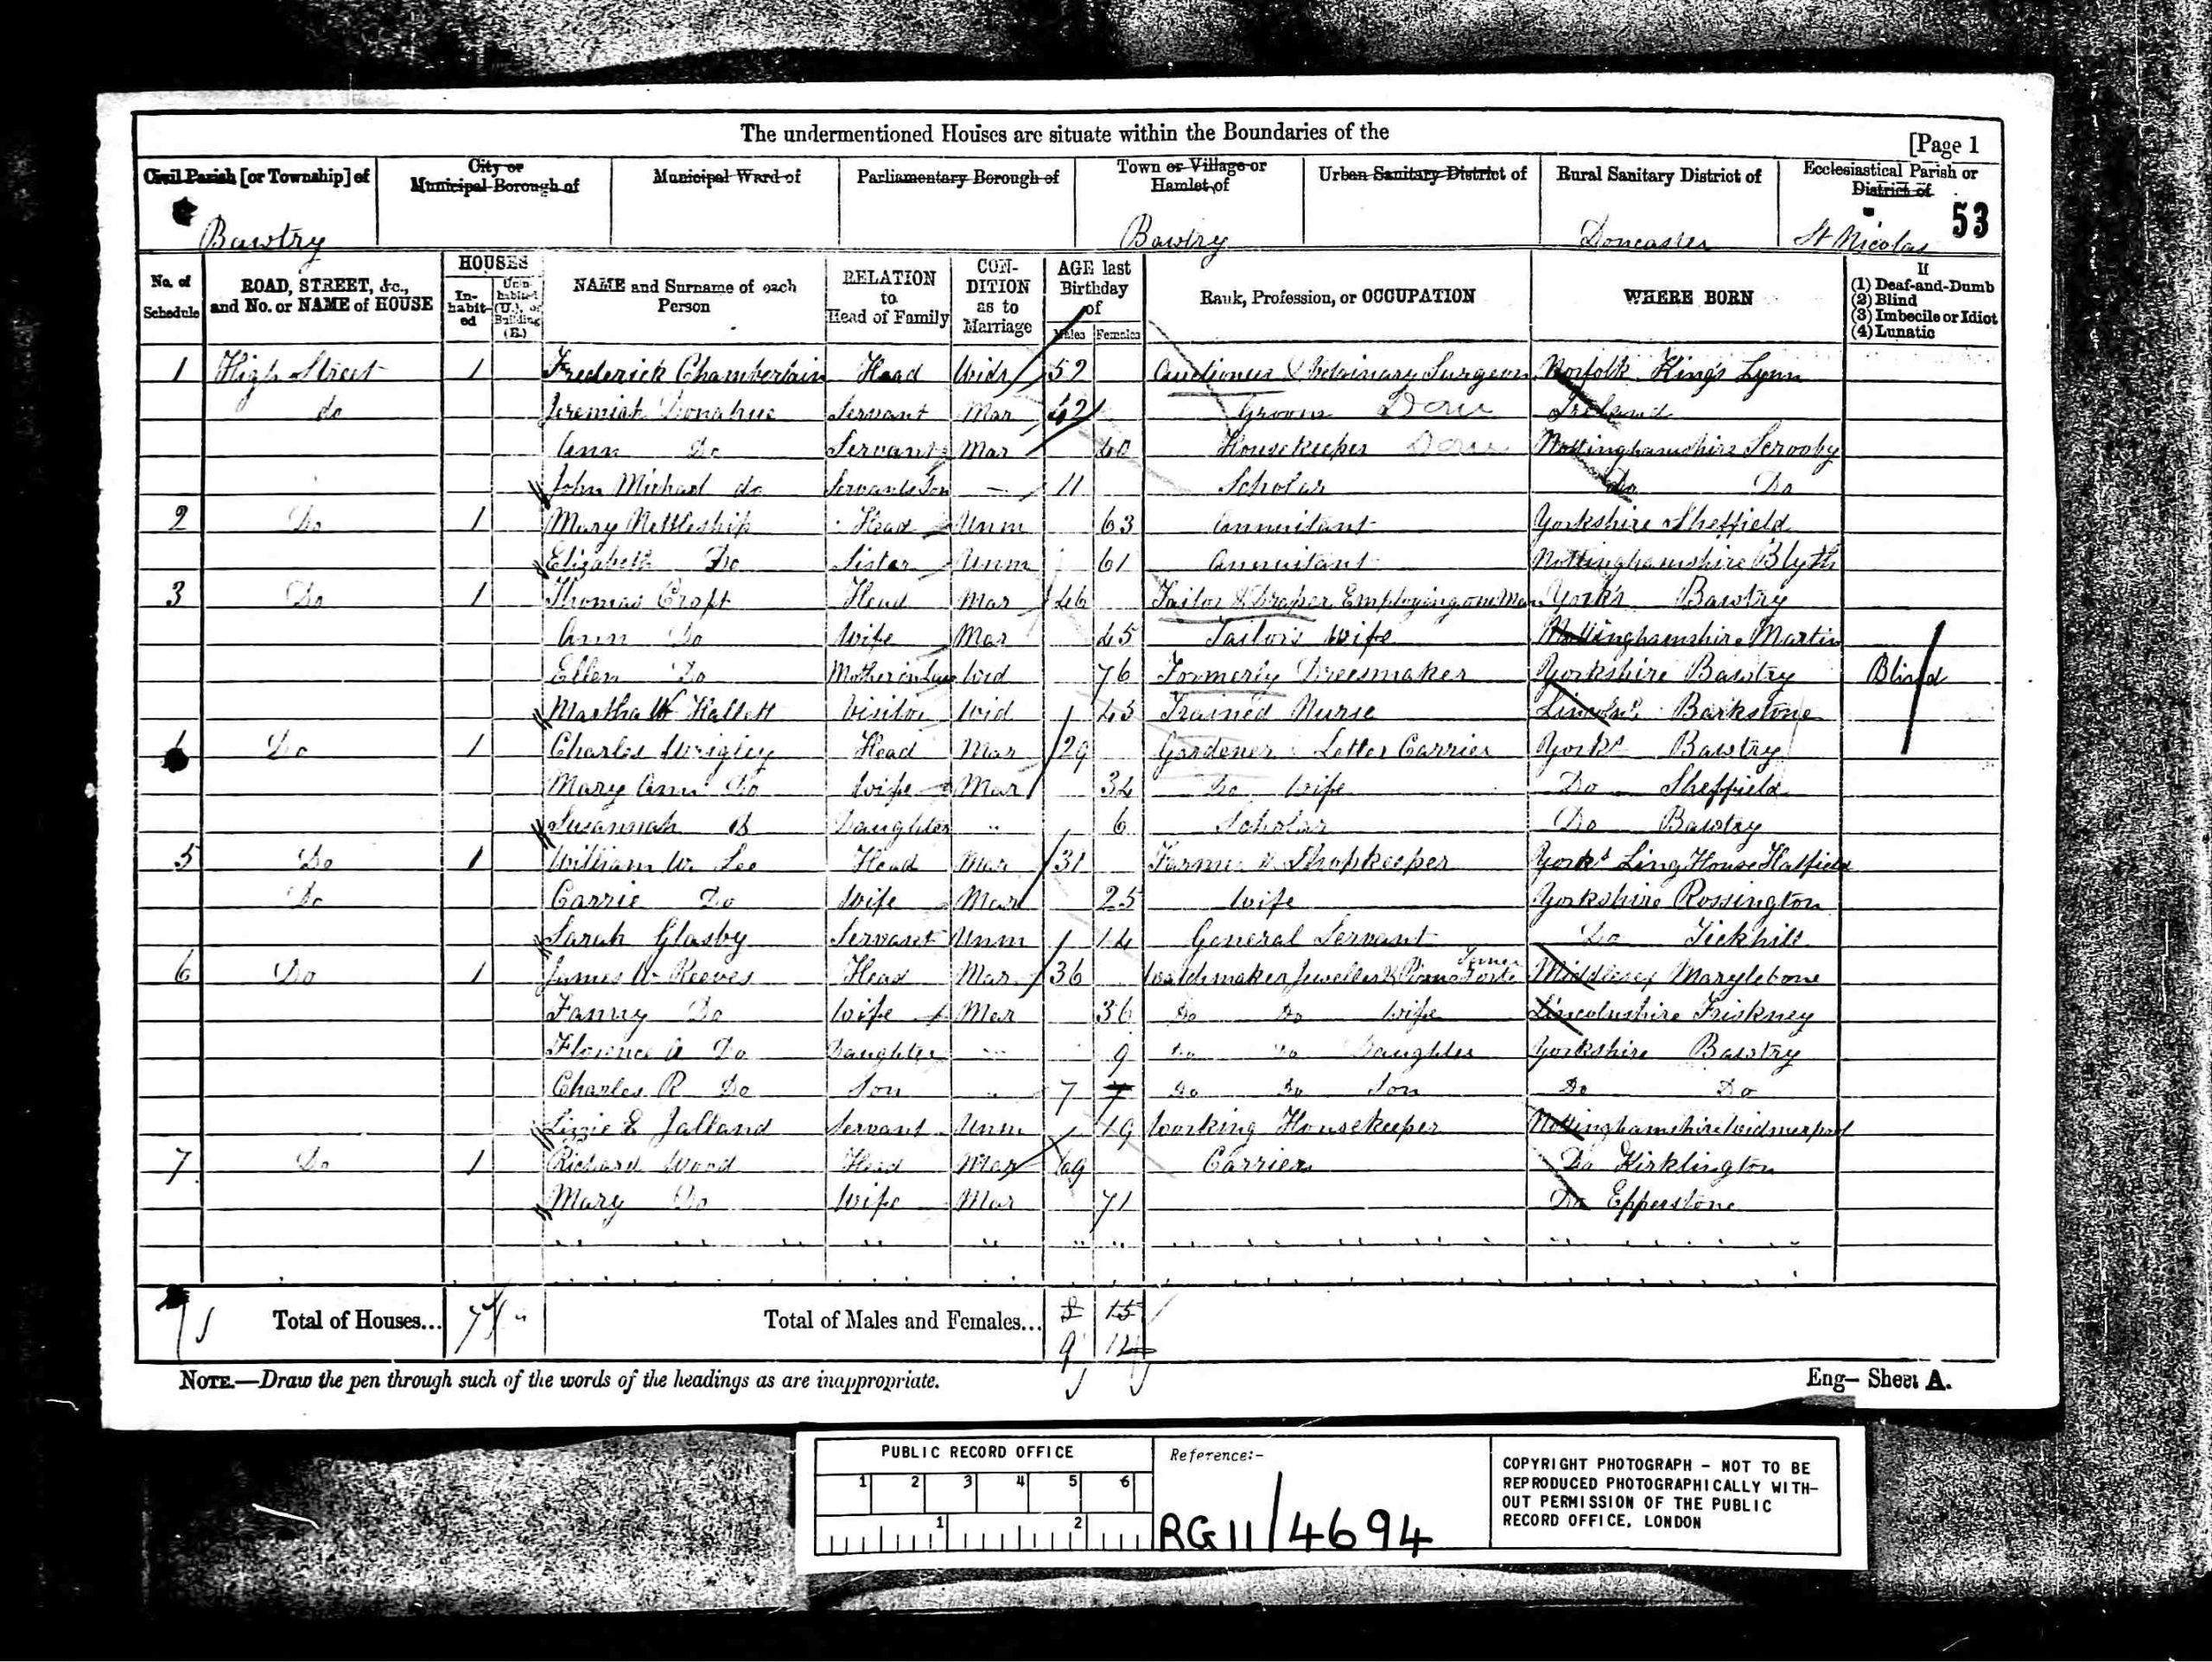 The undermentioned Houses are situate within the Boundaries of the
[Page 1
Civil Parish [or Township] of
City or Municipal Borough of
Municipal Ward of
Parliamentary Borough of
Town or Village or Hamlet of
Urban Sanitary District of
Rural Sanitary District of
Ecclesiastical Parish or District of
53
Bawtry Bawtry Doncaster St Nicolas
No. of Schedule
ROAD, STREET, &c., and No. or NAME of HOUSE
HOUSES
In-habit-ed
Unin-habited (U.), or Building (B.)
NAME and Surname of each Person
RELATION to Head of Family
CON-DITION as to Marriage
AGE last Birthday of
Males Females
Rank, Profession, or OCCUPATION
WHERE BORN
If
(1) Deaf-and-Dumb
(2) Blind
(3) Imbecile or Idiot
(4) Lunatic
1 High Street 1 Frederick Chamberlain Head Widr 52 Auctioneer & Vetrinary Surgeon Norfolk King's Lynn
do Jeremiah Donahue Servant Mar 42 Groom Dom Ireland
Ann Do Servant Mar 40 Housekeeper Dom Nottinghamshire Scrooby
John Michael do Servants Son 11 Scholar Do Do
2 Do 1 Mary Nettleship Head Unm 63 Annuitant Yorkshire Sheffield
Elizabeth Do Sister Unm 61 Annuitant Nottinghamshire Blyth
3 Do 1 Thomas Croft Head Mar 46 Tailor & Draper Employing one Man Yorks Bawtry
Ann Do Wife Mar 45 Tailor's Wife Nottinghamshire Martin
Ellen Do Mother in Law Wid 76 Formerly Dressmaker Yorkshire Bawtry Blind
Martha W Hallett Visitor Wid 43 Trained Nurse Lincolns Barkstone
Do 1 Charles Wrigley Head Mar 29 Gardener Letter Carrier Yorks Bawtry
Mary Ann Do Wife Mar 34 Do Wife Do Sheffield
Susannah Daughter 6 Scholar Do Bawtry
5 Do 1 William W. Lee Head Mar 31 Farmer & Shopkeeper Yorks Ling House Hatfield
Do Carrie Do Wife Mar 25 Wife Yorkshire Rossington
Sarah Glasby Servant Unm 14 General Servant Do Tickhill
6 Do 1 James W Reeves Head Mar 36 Watchmaker Jeweller & Piano Forte Tuner Middlesex Marylebone
Fanny Do Wife Mar 36 Do Do Wife Lincolnshire Friskney
Florence A Do Daughter 9 Do Do Daughter Yorkshire Bawtry
Charles R Do Son 7 7 Do Do Son Do Do
Lizzie E Jalland Servant Unm 19 Working Housekeeper Nottinghamshire Widmerpool
7 Do 1 Richard Wood Head Mar 69 Carrier Do Kirklington
Mary Do Wife Mar 71 Do Epperstone
Total of Houses... 7 Total of Males and Females... 8 15
9 14
NOTE.—Draw the pen through such of the words of the headings as are inappropriate.
Eng— Sheet A.
PUBLIC RECORD OFFICE
1 2 3 4 5 6
1 2
Reference:-
RG 11/4694
COPYRIGHT PHOTOGRAPH - NOT TO BE
REPRODUCED PHOTOGRAPHICALLY WITH-
OUT PERMISSION OF THE PUBLIC
RECORD OFFICE, LONDON